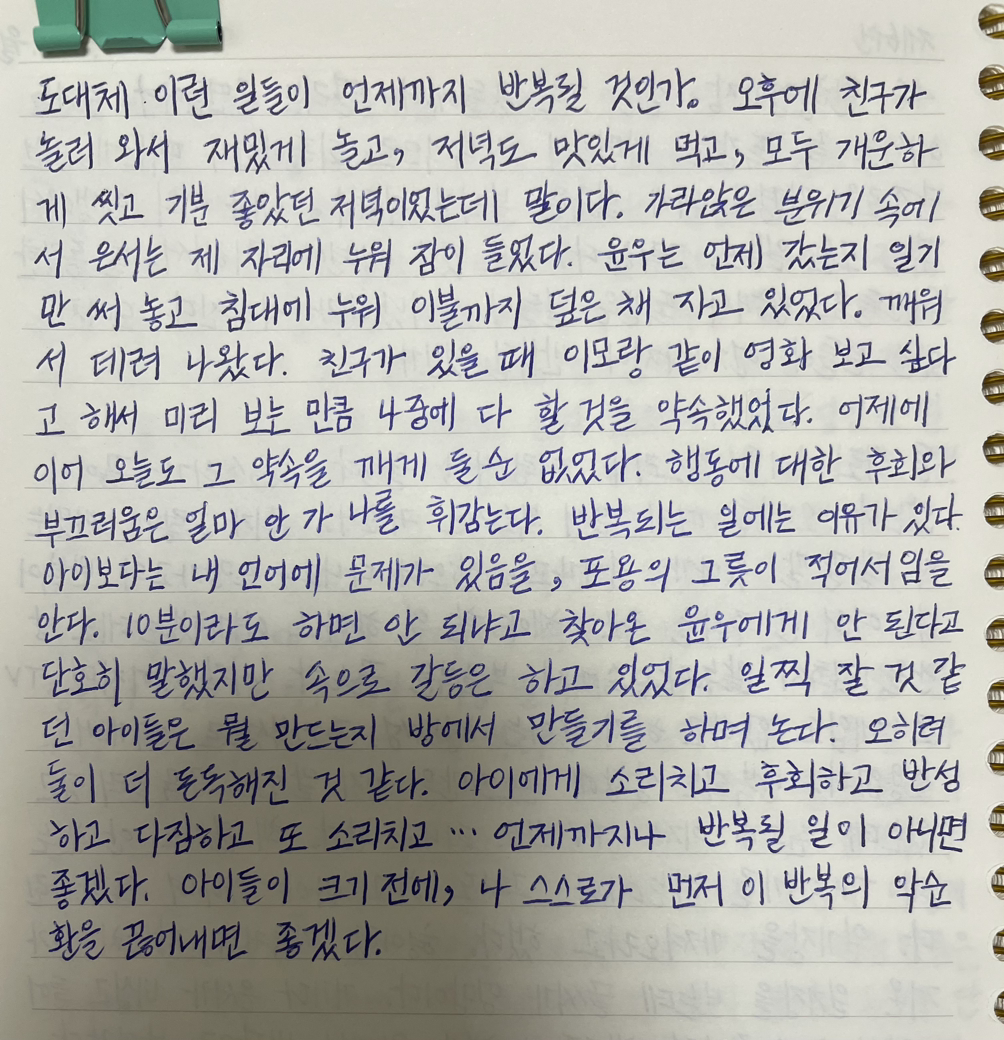 도대체 이런 일들이 언제까지 반복될 것인가. 오후에 친구가
놀러 와서 재밌게 놀고, 저녁도 맛있게 먹고, 모두 개운하
게 씻고 기분 좋았던 저녁이었는데 말이다. 가라앉은 분위기 속에
서 은서는 제 자리에 누워 잠이 들었다. 윤우는 언제 갔는지 일기
만 써 놓고 침대에 누워 이불까지 덮은 채 자고 있었다. 깨워
서 데려 나왔다. 친구가 있을 때 이모랑 같이 영화 보고 싶다
고 해서 미리 보는 만큼 나중에 다 할 것을 약속했었다. 어제에
이어 오늘도 그 약속을 깨게 둘 순 없었다. 행동에 대한 후회와
부끄러움은 얼마 안 가 나를 휘감는다. 반복되는 일에는 이유가 있다.
아이보다는 내 언어에 문제가 있음을, 포용의 그릇이 적어서임을
안다. 10분이라도 하면 안 되냐고 찾아온 윤우에게 안 된다고
단호히 말했지만 속으로 갈등은 하고 있었다. 일찍 잘 것 같
던 아이들은 뭘 만드는지 방에서 만들기를 하며 논다. 오히려
둘이 더 돈독해진 것 같다. 아이에게 소리치고 후회하고 반성
하고 다짐하고 또 소리치고 … 언제까지나 반복될 일이 아니면
좋겠다. 아이들이 크기 전에, 나 스스로가 먼저 이 반복의 악순
환을 끊어내면 좋겠다.